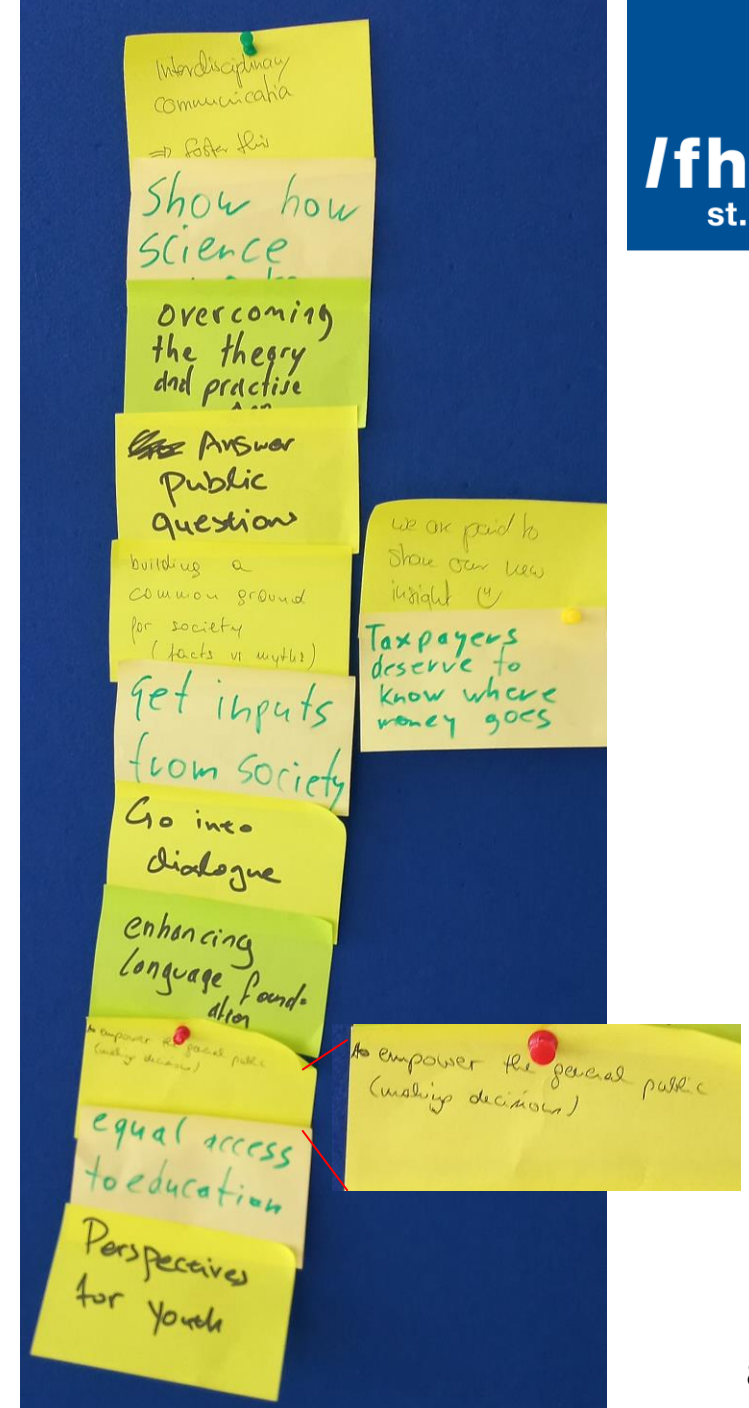 Interdisciplinary
communicatia
⇒ foster this
Show how
science
overcoming
the theory
and practise
Answer
public
questions
building a
common ground
for society
(facts vs myths)
Get inputs
from society
Go into
dialogue
enhancing
language found-
ation
to empower the general public
(making decisions)
equal access
to education
Perspectives
for Youth
we are paid to
share our new
insight
Taxpayers
deserve to
know where
money goes
to empower the general public
(making decisions)
/fh
st.